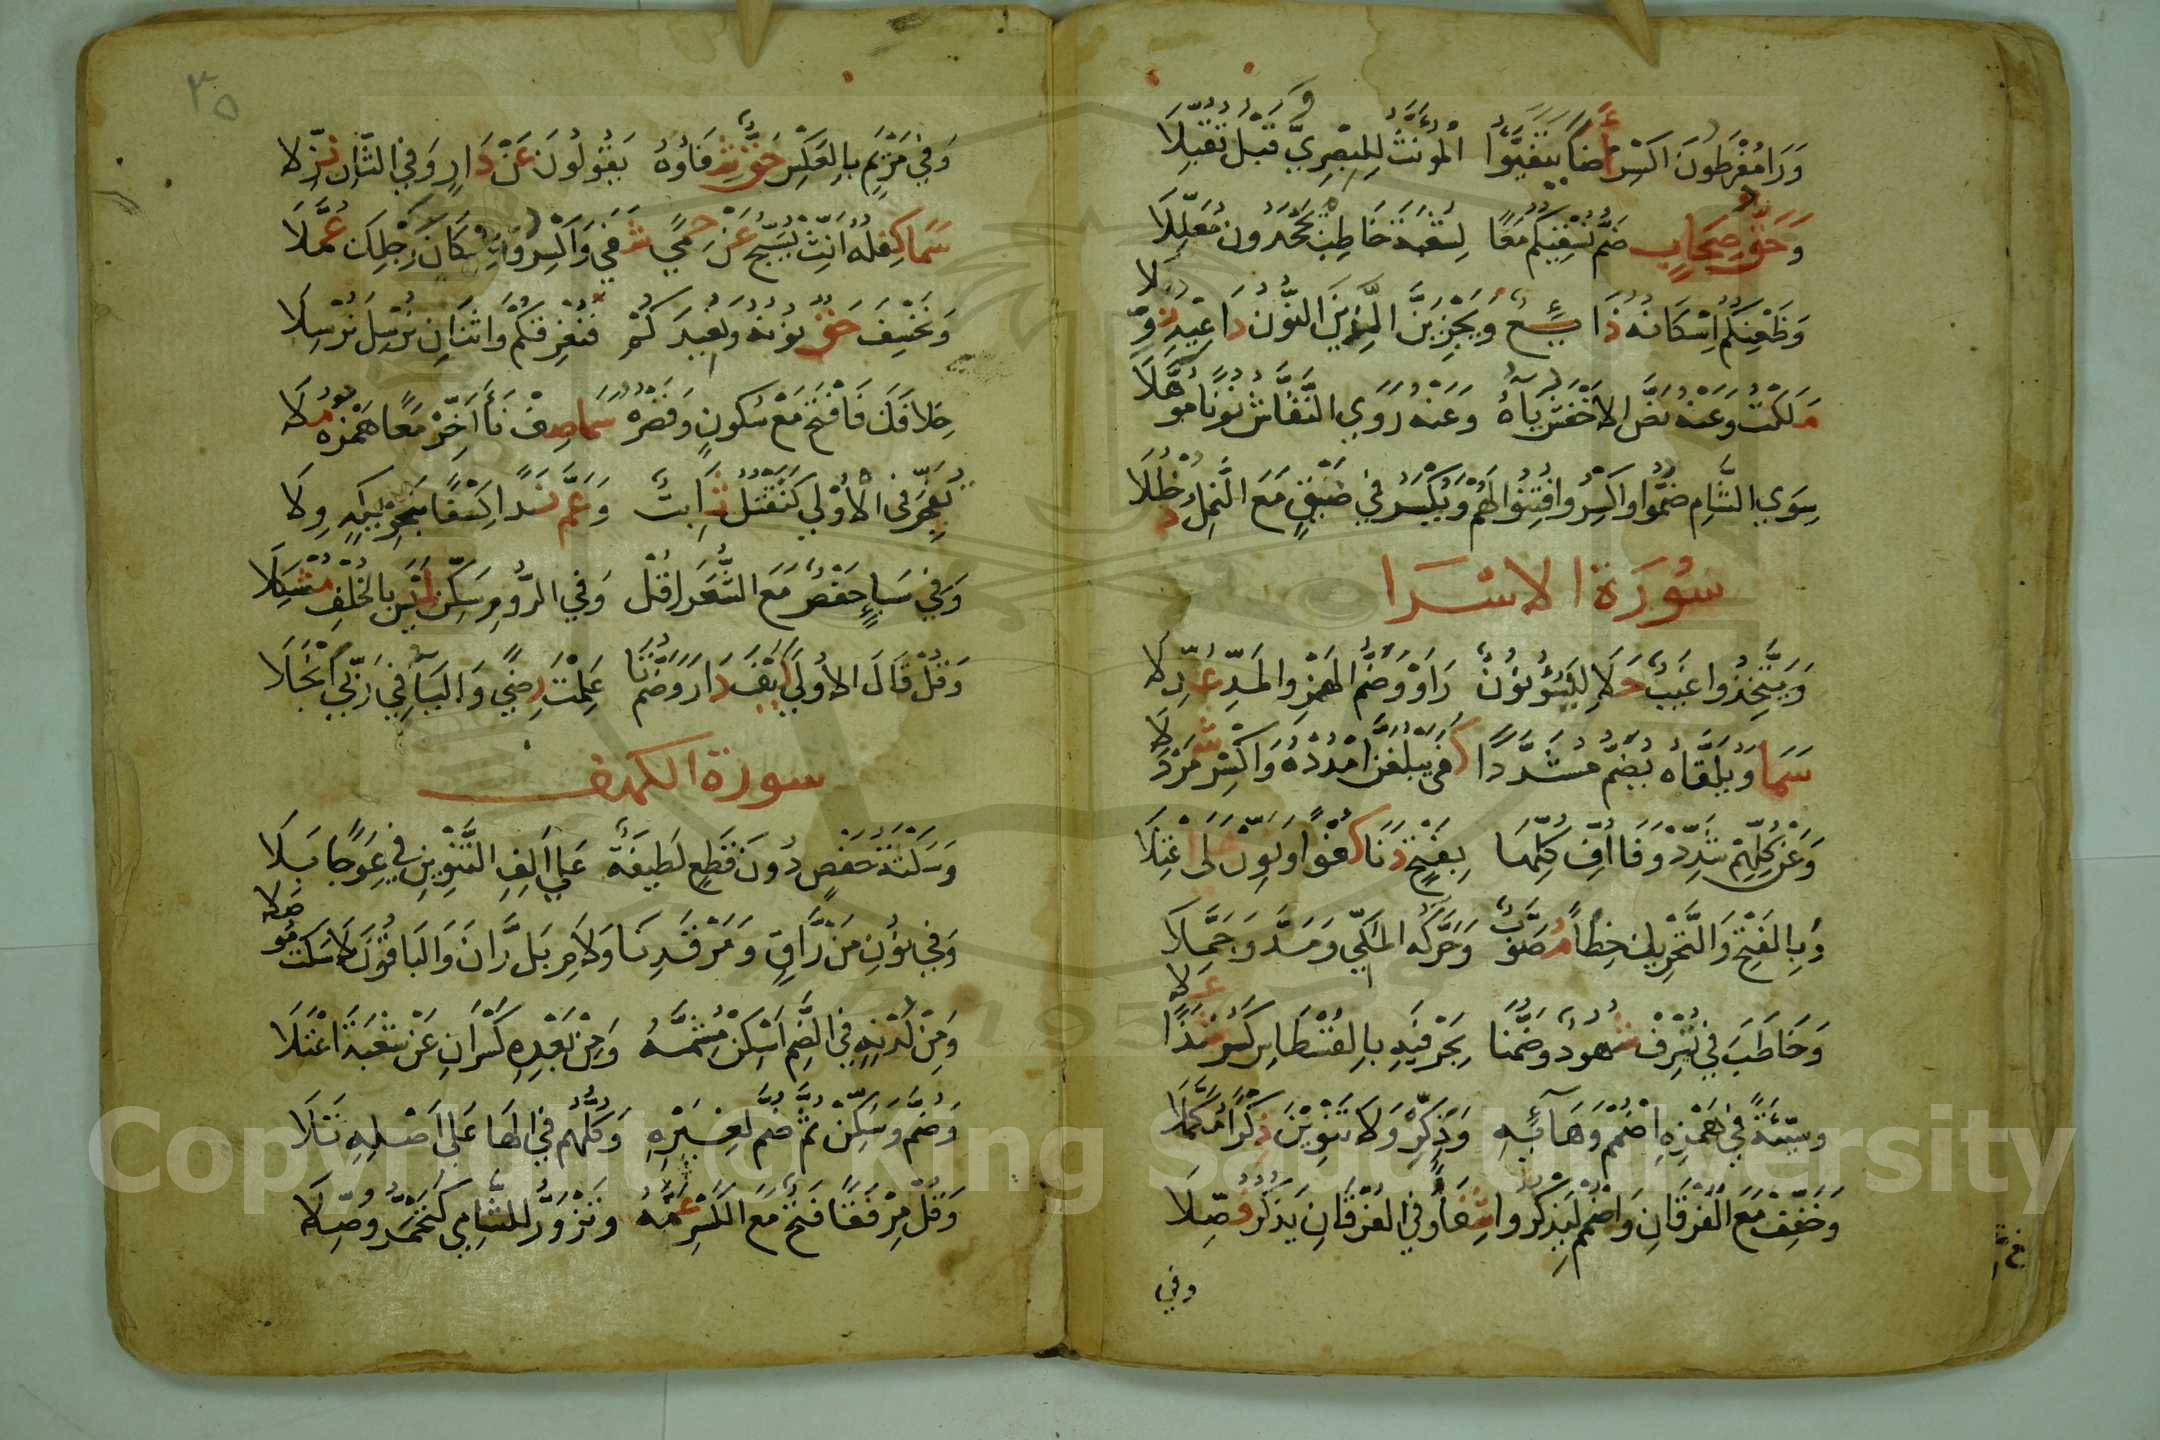 وَرَا مُفْرَطُونَ اكْسِرْ أَضَا يَتَفَيَّؤُا الْمُؤَنَّثُ لِلْبَصْرِيِّ قَبْلُ تُقُبِّلَا
وَحَقُّ صِحَابٍ ضَمَّ نُسْقِيكُمُ مَعًا لِشُعْبَةَ خَاطِبْ تَجْحَدُونَ مُعَلِّلَا
وَظَعْنِكُمُ اِسْكَانُهُ ذَائِعٌ وَيَجْزِيَنَّ الَّذِينَ النُّونُ دَاعِيهِ نُوِّلَا
مَلَكْتُ وَعَنْهُ نَصَّ الاخْفَشُ يَآءَهُ وَعَنْهُ رَوَي النَّقَّاشُ نُونًا مُوَهَّلَا
سِوَي الشَّامِ ضُمُّوا وَاكْسِرُوا فَتِنُوا لَهُمْ وَيُكْسَرُ فِي ضَيْقٍ مَعَ النَّمْلِ دُخْلُلَا
سُورَة الاسْرَا
وَيَتَّخِذُوا غَيْبٌ حَلَا لِيَسُوءَ نُونٌ رَاوٍ وَضَمُّ الهَمْزِ وَالمَدِّ عُدِّلَا
سَمَا وَيُلَقَّاهُ يُضَمُّ مُشَدَّدًا كَفَي يَبْلُغَنَّ امْدُدْهُ وَاكْسِرْ شَمَرْدَلَا
وَعَنْ كُلِّهِمْ شَدِّدْ وَفَا أُفِّ كُلِّهَا بِفَتْحٍ دَنَا كُفْؤًا وَنَوِّنْ عَلَى اعْتِلَا
وَبِالفَتْحِ وَالتَّحْرِيكِ خِطْأً مُصَوَّبٌ وَحَرَّكَهُ المَكِّي وَمَدَّ وَجَمَّلَا
وَخَاطَبَ فِي يُسْرِفْ شُهُودٌ وَضَمُّنَا بِحَرْفَيهِ بِالقُسْطَاسِ كَسْرُ شَذًا عَلَا
وَسَيِّئَةً فِي هَمْزِهِ اِضْمُمْ وَهَآئِهِ وَذَكِّرْ وَلَا تَنْوِينَ ذِكْرًا مُكَمَّلَا
وَخَفِّفْ مَعَ الْفُرْقَانِ وَاضْمُمْ لِيَذْكُرُوا شِفَاءً وَفِي الفُرْقَانِ يَذْكُرُ فُصِّلَا
وفي
٣٥
وَفِي مَرْيَمٍ بِالعَكْسِ حَقٌّ شِفَاؤُهُ يَقُولُونَ عَنْ دَارٍ وَفِي الثَّانِ نُزِّلَا
سَمَا كِفْلُهُ أَنِّثْ يُسَبِّحُ عَنْ حِمًي شَفَي وَاكْسِرُوا إِسْكَانَ رَجْلِكَ عُمَّلَا
وَنَخْسِفَ حَقٌّ نُونُهُ وَنُعِيدَكُمْ فَنُغْرِقَكُمْ وَاثْنَانِ نُرْسِلَ نُرْسِلَا
خِلَافَكَ فَافْتَحْ مَعْ سُكُونٍ وَقَصْرُهُ سَمَا صِفْ نَأَى أَخِّرْ مَعًا هَمْزَهُ مُلَا
تُفَجِّرَ فِي الْأُوْلَي كَتَقْتُلُ ثَابِتٌ وَعَمَّ نَدًا كِسْفًا بِتَحْرِيكِهِ وِلَا
وَفِي سَبَأٍ حَفْصٌ مَعَ الشُّعَرَا قُلْ وَفِي الرُّومِ سَكِّنْ لَيْسَ بِالخُلْفِ مُشْكِلَا
وَقُلْ قَالَ الأُولَي كَيْفَ دَارَ وَضَمُّ تَا عَلِمْتَ رِضًي وَاليَآءُ فِي رَبِّي انْجَلَا
سورة الكهف
وَسَكْتَةُ حَفْصٍ دُونَ قَطْعٍ لَطِيفَةٌ عَلَي أَلِفِ التَّنْوِينِ فِي عِوَجًا بَلَا
وَفِي نُونِ مَنْ رَّاقٍ وَمَرْقَدِنَا وَلَامِ بَل رَّانَ وَالبَاقُونَ لَا سَكْتَ مُوصَلَا
وَمِنْ لَدْنِهِ فِي الضَّمِّ أَسْكِنْ مُشِمَّهُ وَمِنْ بَعْدِهِ كَسْرَانِ عَنْ شُعْبَةَ اعْتَلَا
وَضُمَّ وَسَكِّنْ ثُمَّ ضُمَّ لِغَيْرِهِ وَكُلُّهُمُ فِي الهَا عَلَي أَصْلِهِ تَلَا
وَقُلْ مِرْفَقًا فَتْحٌ مَعَ الكَسْرِ عَمَّهُ وَتَزْوَرُّ لِلشَّامِي كَتَحْمَرُّ وُصِّلَا
Copyright © King Saud University